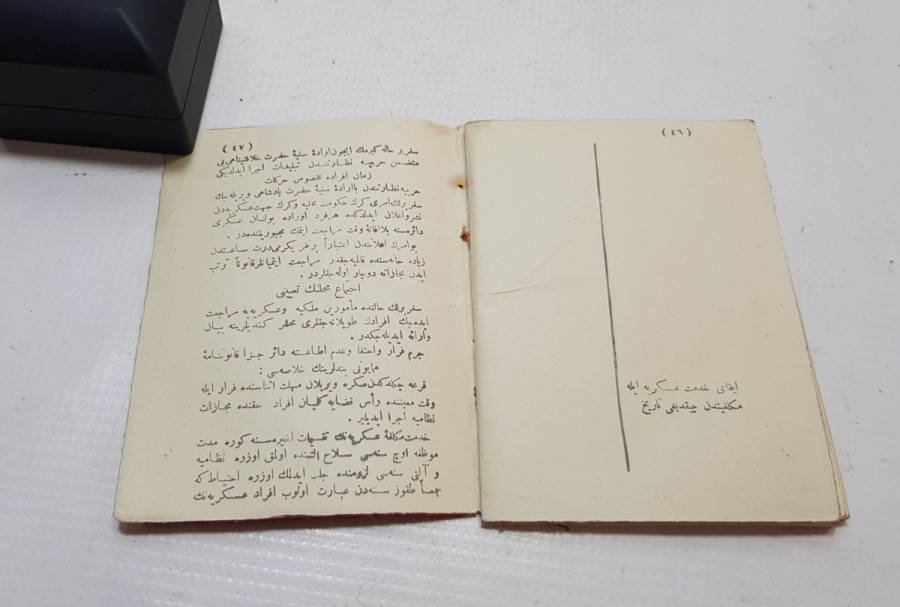 (٤٦)
ايفاى خدمت عسكريه ايله
مكلفيتدن چيقديغى تاريخ
(٤٧)
سفربر حاله كيرمك ايچون ارادۀ سنيۀ حضرت خلافتپناهى يى
متضمن حربيه نظارتندن تبليغات اجرا ايدلديكى
زمان افراده مخصوص حركات
حربيه نظارتندن باارادۀ سنيۀ حضرت پادشاهى ويريله جك
سفربرلك امرى كرك حكومت محليه وكرك جهت عسكريه دن
نشر واعلان ايدلدكده هرفرد اوراده بولنان عسكرى
دائره سنه بلاافاتۀ وقت مراجعت ايتمك مجبوريتنده در .
بوامرك اعلانندن اعتباراً برنفر يكرمى درت ساعتدن
زياده خانه سنده قاليه جقدر مراجعت ايتميانلر قانوناً ترتب
ايدن مجازاته دوچار اوله جقلردر .
اجتماع محلنك تعيينى
سفربرلك حالنده مأمورين ملكيه وعسكريه يه مراجعت
ايده جك افرادك طوپلانه جقلرى محللر كنديلرينه بيان
وارائه ايديله جكدر .
جرم فرار واختفا وعدم اطاعته دائر جزا قانوننامۀ
همايونى بندلرينك خلاصه سى :
قرعه چكدكدن صكره ويريلان مهلت اثناسنده فرار ايله
وقت معيننده رأس قضايه كلميان افراد حقنده مجازات
نظاميه اجرا ايديلير .
خدمت مكلفۀ عسكريه نك تقسيمات اخيره سنه كوره مدت
موظفه اوچ سنه سى سلاح آلتنده اولمق اوزره نظاميه
و آلتى سنه سى لزومنده جلب ايدلمك اوزره احتياط كه
جمعاً طقوز سنه دن عبارت اولوب افراد عسكريه نك